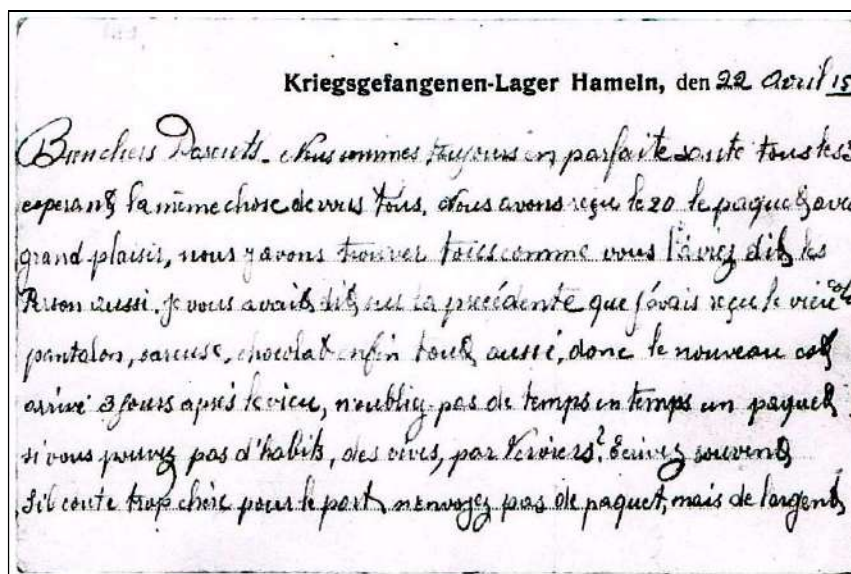 Kriegsgefangenen-Lager Hameln, den 22 Avril 15
Bien chers Parents. Nous sommes toujours en parfaite santé tous les 3
esperant la même chose de vous tous. Nous avons reçu le 20 le paquet avec
grand plaisir, nous y avons trouver tous comme vous l'aviez dit les
Person aussi. Je vous avait dit sur la precédente que j'avais reçu le vieu
pantalon, sareuse, chocolat enfin tout aussi, donc le nouveau est
arrivé 3 jours aprés le vieu, n'oubliez pas de temps en temps un paquet
si vous pouvez pas d'habits, des vives, par Verviers? Ecrivez souvent
S'il coute trop chère pour le port n'envoyez pas de paquet, mais de l'argent